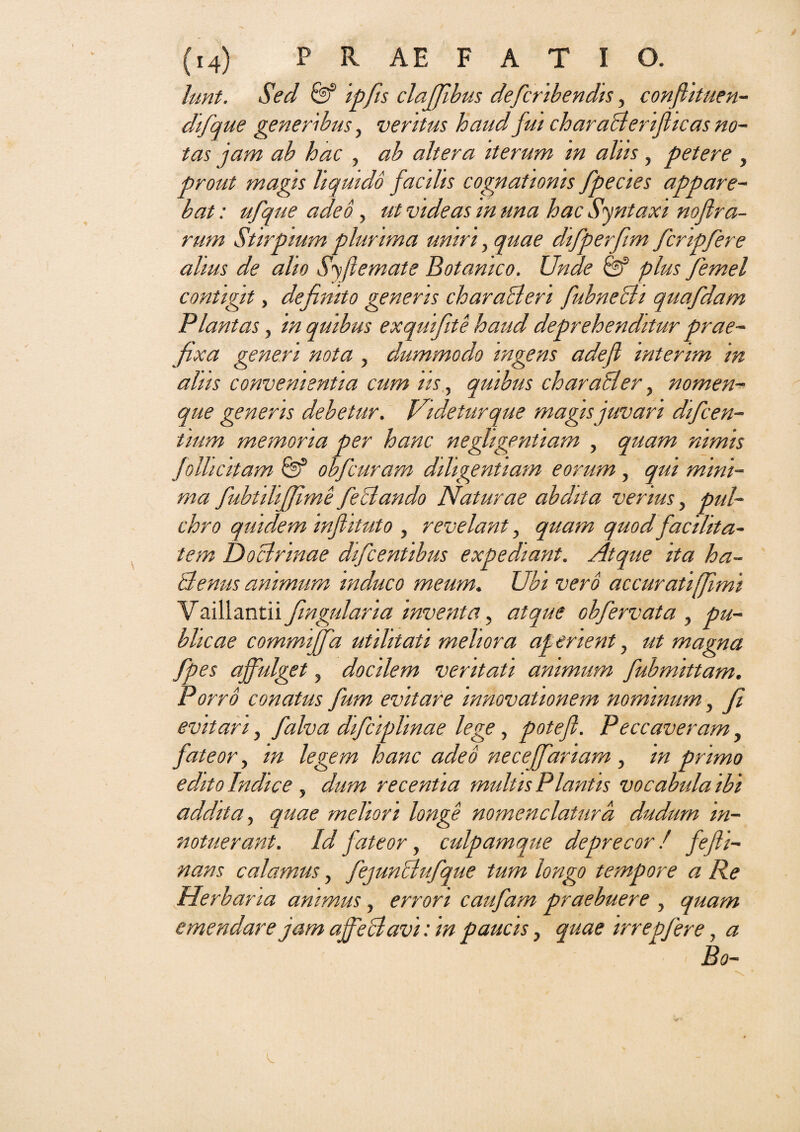 (14) PRAEFATIO.
lunt. Sed & ipſis claſſibus deſcribendis, conſtituen-
diſque generibus, veritus haud fui characteriſticas no-
tas jam ab hac, ab altera iterum in aliis, petere,
prout magis liquidò facilis cognationis ſpecies appare-
bat: uſque adeò, ut videas in una hac Syntaxi noſtra-
rum Stirpium plurima uniri, quae diſperſim ſcripſere
alius de alio Syſtemate Botanico. Unde & plus ſemel
contigit, definito generis characteri ſubnecti quaſdam
Plantas, in quibus exquiſitè haud deprehenditur prae-
fixa generi nota, dummodo ingens adeſt interim in
aliis convenientia cum iis, quibus character, nomen-
que generis debetur. Videturque magis juvari diſcen-
tium memoria per hanc negligentiam, quam nimis
ſollicitam & obſcuram diligentiam eorum, qui mini-
ma ſubtiliſſimè ſectando Naturae abdita verius, pul-
chro quidem inſtituto, revelant, quam quod facilita-
tem Doctrinae diſcentibus expediant. Atque ita ha-
ctenus animum induco meum. Ubi verò accuratiſſimi
Vaillantii ſingularia inventa, atque obſervata, pu-
blicae commiſſa utilitati meliora aperient, ut magna
ſpes affulget, docilem veritati animum ſubmittam.
Porrò conatus ſum evitare innovationem nominum, ſi
evitari, ſalva diſciplinae lege, poteſt. Peccaveram,
fateor, in legem hanc adeò neceſſariam, in primo
edito Indice, dum recentia multis Plantis vocabula ibi
addita, quae meliori longè nomenclaturâ dudum in-
notuerant. Id fateor, culpamque deprecor! feſti-
nans calamus, ſejunctuſque tum longo tempore a Re
Herbaria animus, errori cauſam praebuere, quam
emendare jam affectavi: in paucis, quae irrepſere, a
Bo-